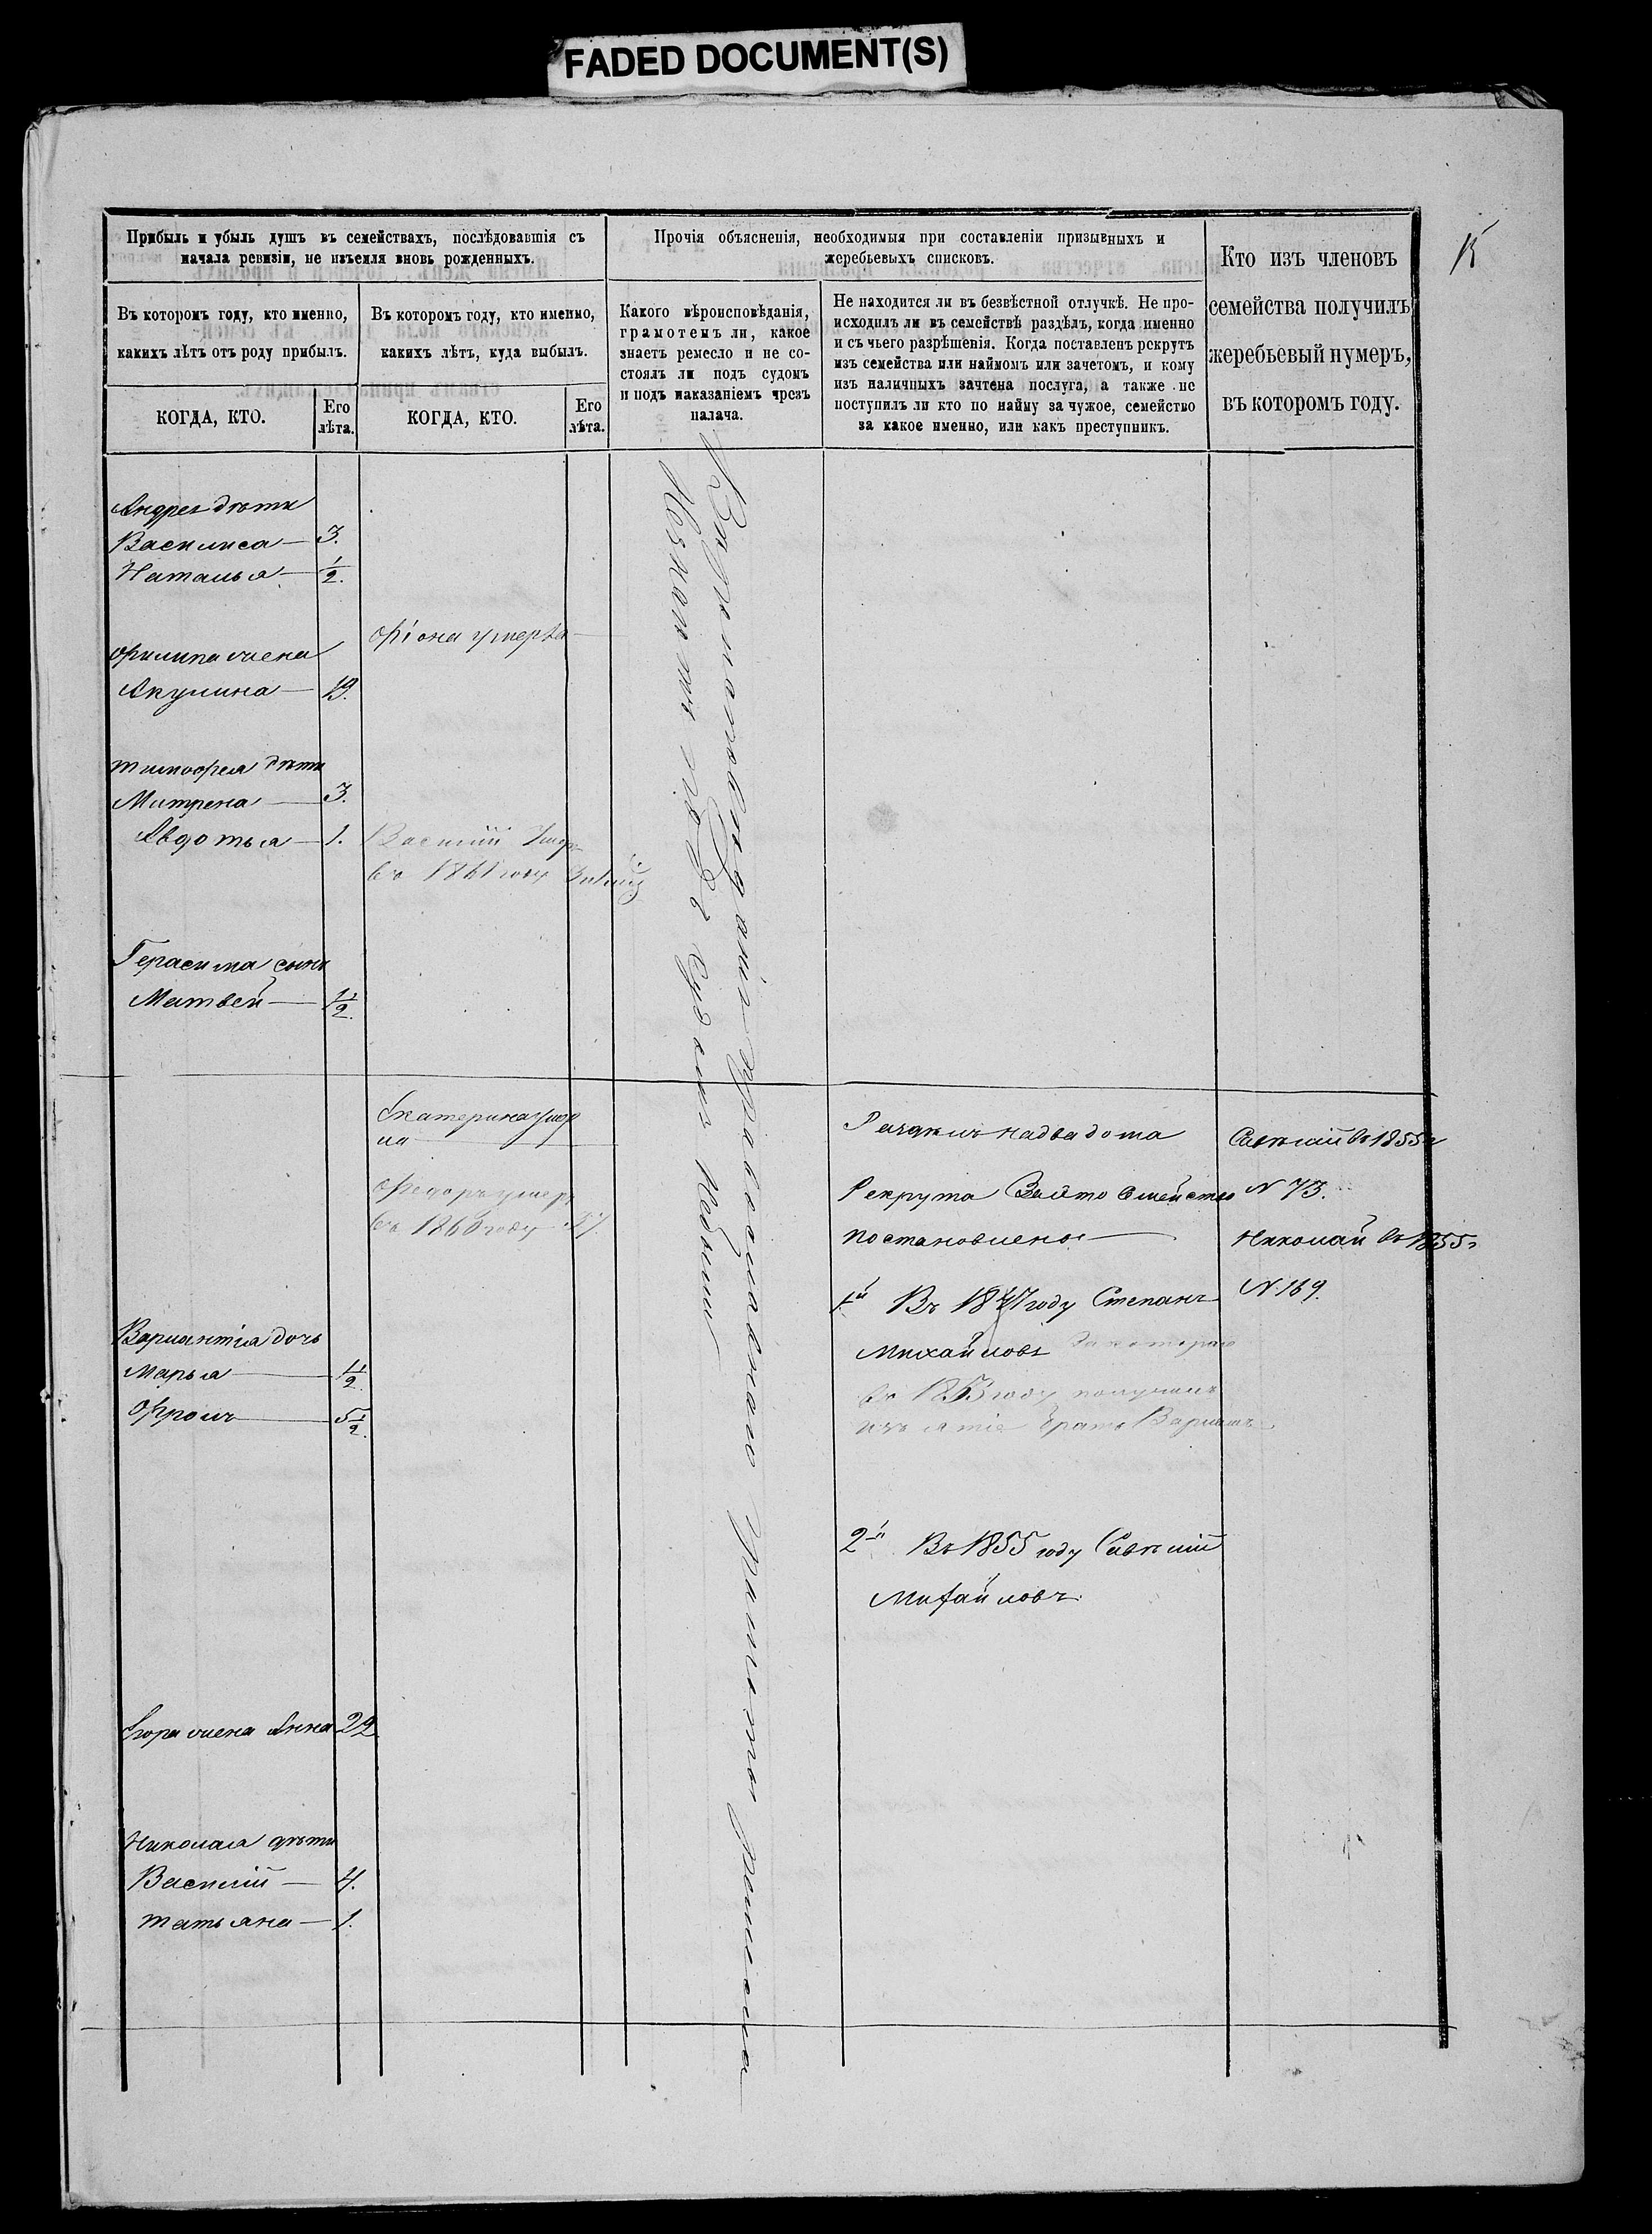 FADED DOCUMENT(S)
15
Прибыль и убыль душъ въ семействахъ, послѣдовавшія съ
начала ревизіи, не изъемля вновь рожденныхъ.
Въ которомъ году, кто именно,
какихъ лѣтъ отъ роду прибылъ.
КОГДА, КТО.
Его
лѣта.
Въ которомъ году, кто именно,
какихъ лѣтъ, куда выбылъ.
КОГДА, КТО.
Его
лѣта.
Прочія объясненія, необходимыя при составленіи призывныхъ и
жеребьевыхъ списковъ.
Какого вѣроисповѣданія,
грамотенъ ли, какое
знаетъ ремесло и не со-
стоялъ ли подъ судомъ
и подъ наказаніемъ чрезъ
палача.
Не находится ли въ безвѣстной отлучкѣ. Не про-
исходилъ ли въ семействѣ раздѣлъ, когда именно
и съ чьего разрѣшенія. Когда поставленъ рекрутъ
изъ семейства или наймомъ или зачетомъ, и кому
изъ наличныхъ зачтена послуга, а также не
поступилъ ли кто по найму за чужое, семейство
за какое именно, или какъ преступникъ.
Кто изъ членовъ
семейства получилъ
жеребьевый нумеръ,
въ которомъ году.
Андрея дѣти
Василиса 3.
Наталья 1/2.
Филипа жена
Акулина 19.
Тимофея дѣти
Матрена 3.
Авдотья 1.
Герасима сынъ
Матвей 1/2.
Фіона умерла
Василий Умеръ
въ 1861 году
Вѣроисповѣданія православнаго Грамоты
Незнаетъ подъ Судомъ Небылъ
Екатерина умер
ла
Федоръ умеръ
въ 1860 году 27
Варлантія дочь
Марья 1/2.
Фролъ 5 1/2.
Егора жена Анна 22
Николая дѣти
Василій 4.
Татьяна 1.
на два дома
Рекрута
постановлено
1й Въ 1847 году Степанъ
Михайловъ за котораго
въ году получилъ
братъ
2й Въ 1855 году Савелій
Михайловъ
Савелій въ 1855 г
N 73.
Николай въ 1855 г
N 169.